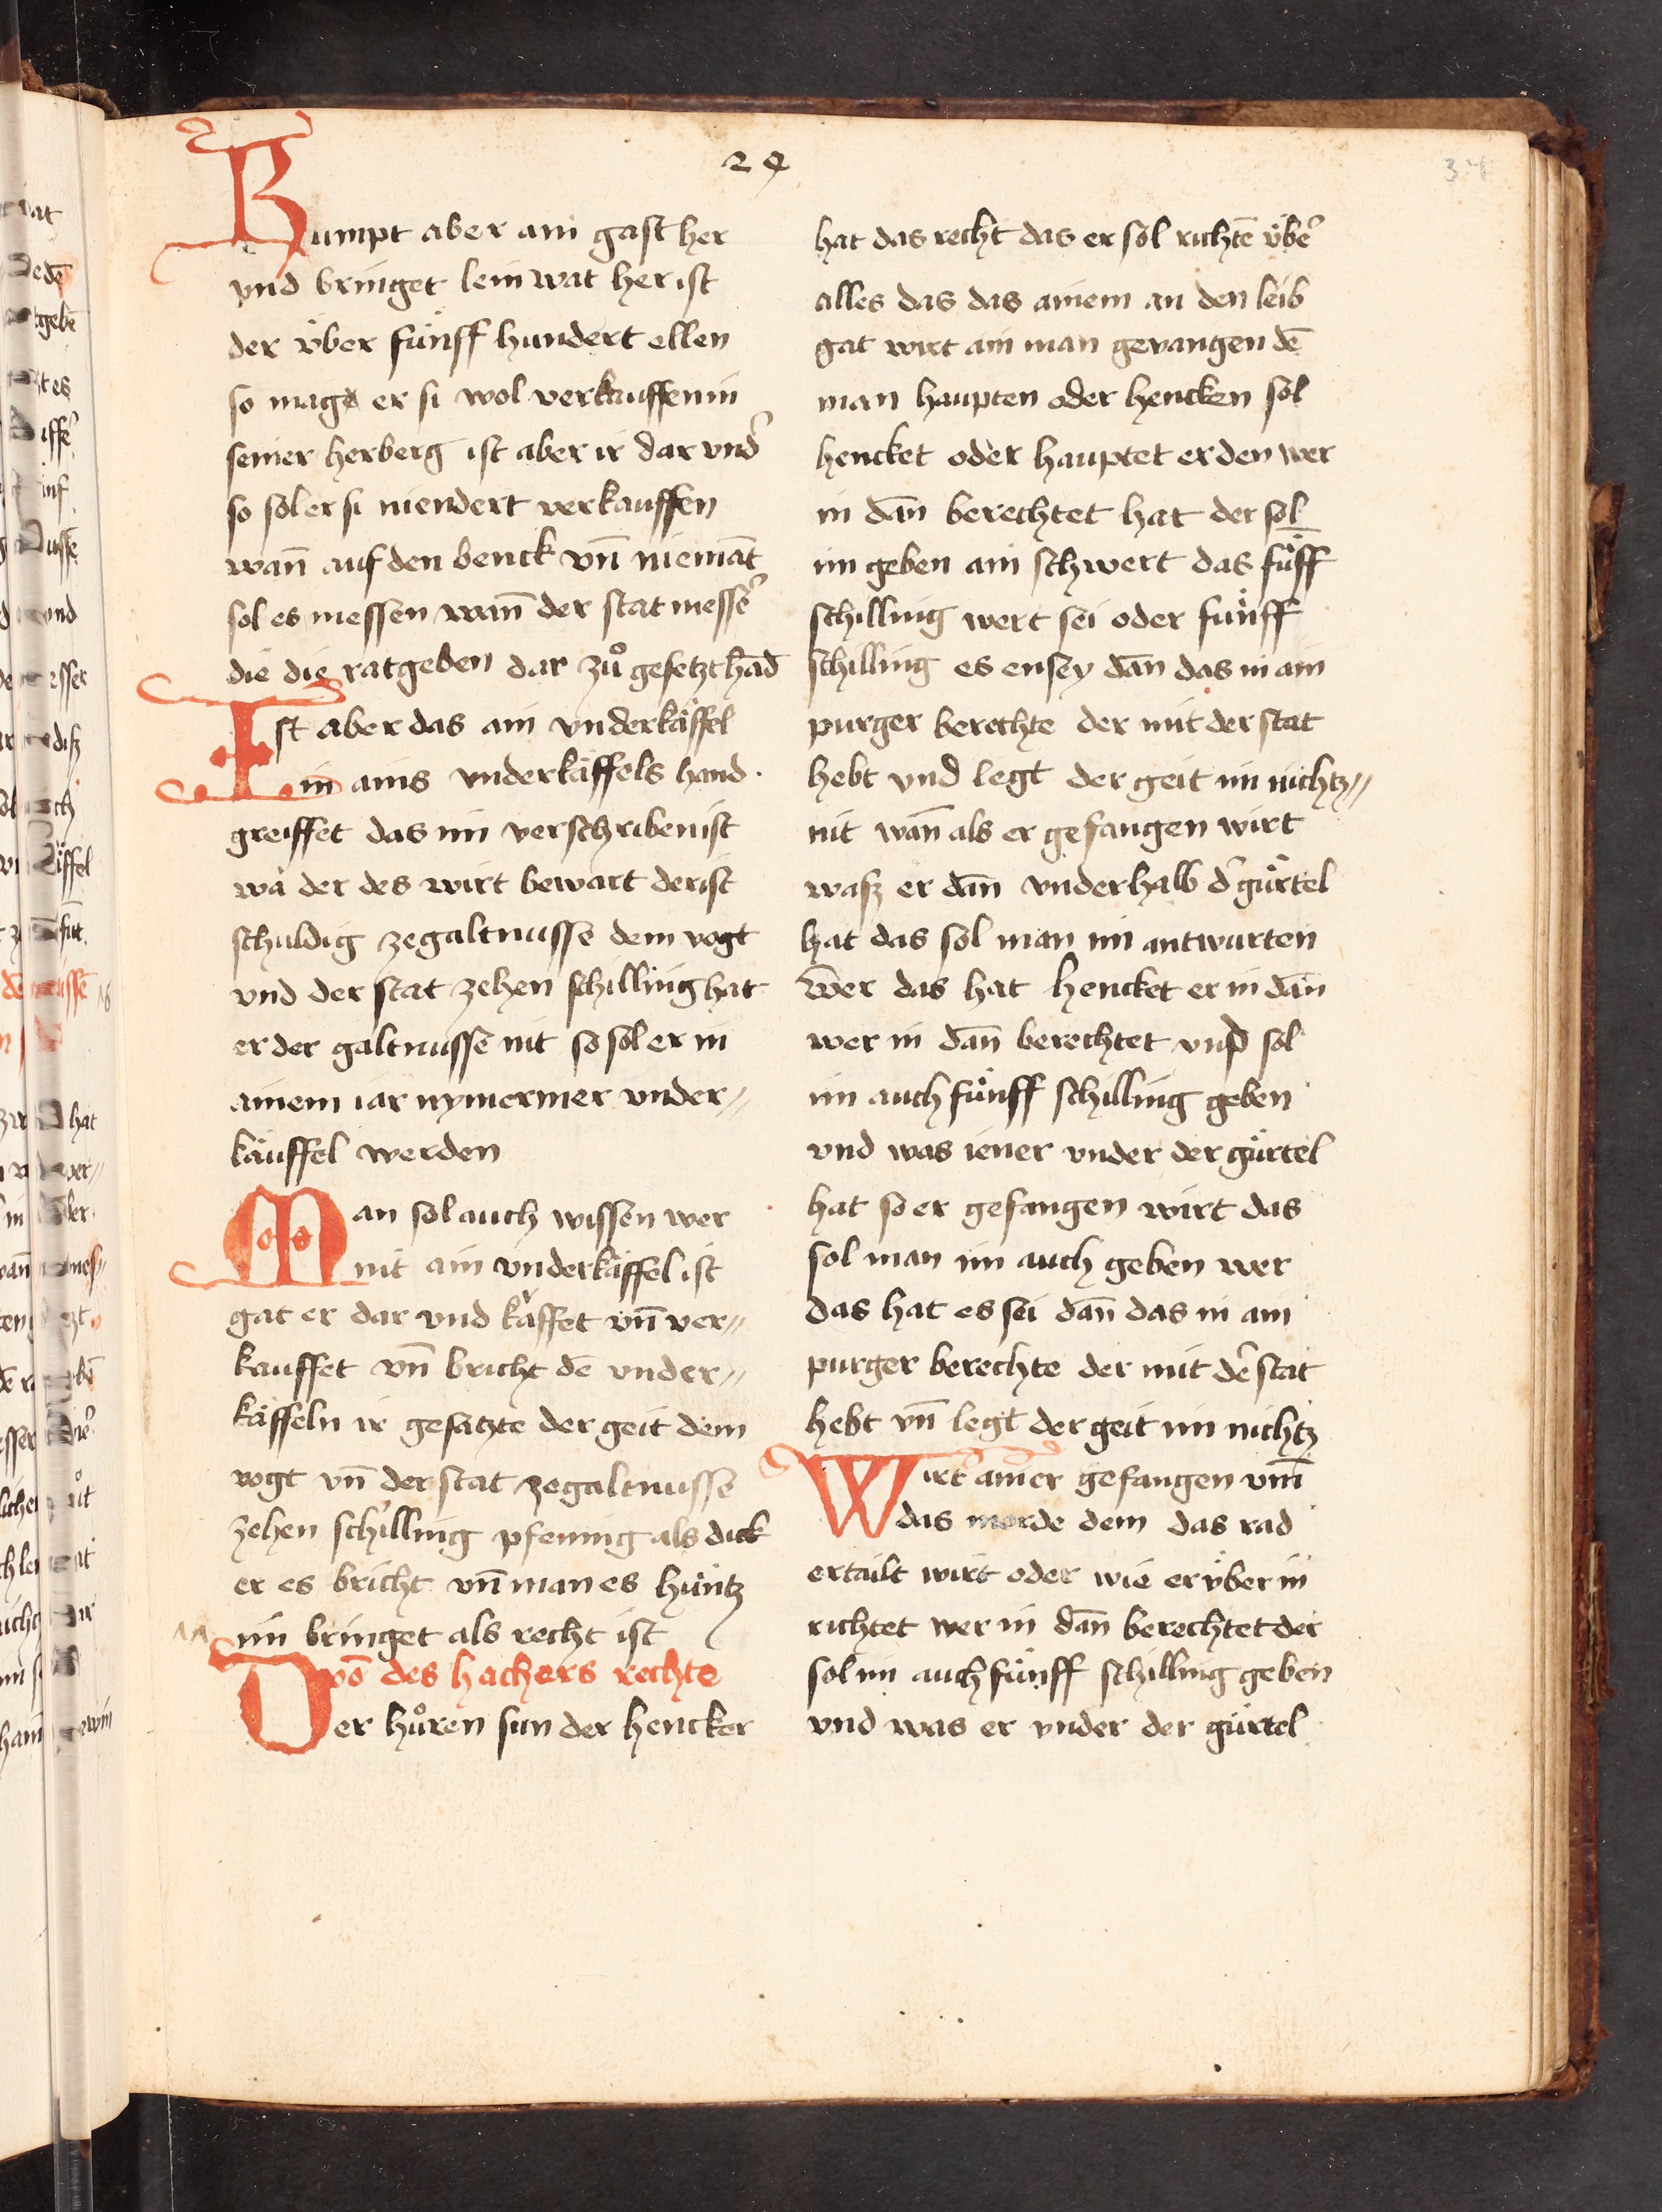 24
34
Kumpt aber ain gast her
vnd bringet leinwat her ist
der v̈ber fünff hundert ellen
so mag er si wol verkauffen in
seiner herberg ist aber ir dar vnd̾
so sol er si niendert verkauffen
wan̄ auf den benck vn̄ niemāt
sol es messen wan̄ der stat messe̾
die die ratgeben dar zů gesetzt hād
Ist aber das ain vnderkäffel
in ains vnderkäffels hand
greiffet das im verschriben ist
wa der des wirt bewärt der ist
schuldig zegaltnusse dem vogt
vnd der stat zehen schilling hat
er der galtnusse nit so sol er in
ainem iar nymermer vnder〃
käuffel werden
Man sol auch wissen wer
nit ain vnderkäffel ist
gat er dar vnd käffet vn̄ ver〃
kauffet vn̄ bricht dē vnder〃
käffeln ir gesätzte der geit dem
vogt vn̄ der stat zegaltnusse
zehen schilling pfening als dick
er es bricht vn̄ man es hüntz
im bringet als recht ist
vō des hachers rechte
Der hůren sun der hencker
hat das recht das er sol richtē v̈be̾
alles das das ainem an den leib
gat wirt ain man gevangen dē
man haupten oder hencken sol
hencket oder hauptet er den wer
in dan̄ berechtet hat der sol
im geben ain schwert das fǖff
schilling wert sei oder fünff
schilling es ensey dan̄ das in ain
purger berechte der mit der stat
hebt vnd legt der geit im nichtz〃
nit wan̄ als er gefangen wirt
wasz er dan̄ vnderhalb d̾ gürtel
hat das sol man im antwurten
wer das hat hencket er in dan̄
wer in dan̄ berechtet vnd sol
im auch fünff schilling geben
vnd was iener vnder der gürtel
hat so er gefangen wirt das
sol man im auch geben wer
das hat es sei dan̄ das in ain
purger berechte der mit de̾ stat
hebt vn̄ legt der geit im nichtz
Wirt ainer gefangen vm̄
das morde dem das rad
ertailt wirt oder wie er v̈ber in
richtet wer in dan̄ berechtet der
sol im auch fünff schilling geben
vnd was er vnder der gürtel